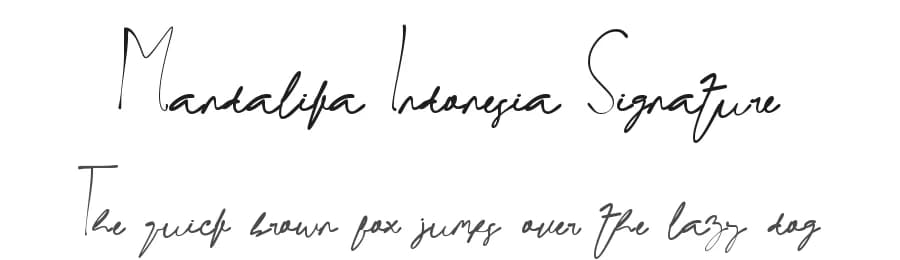 Mandalika Indonesia Signature
The quick brown fox jumps over the lazy dog